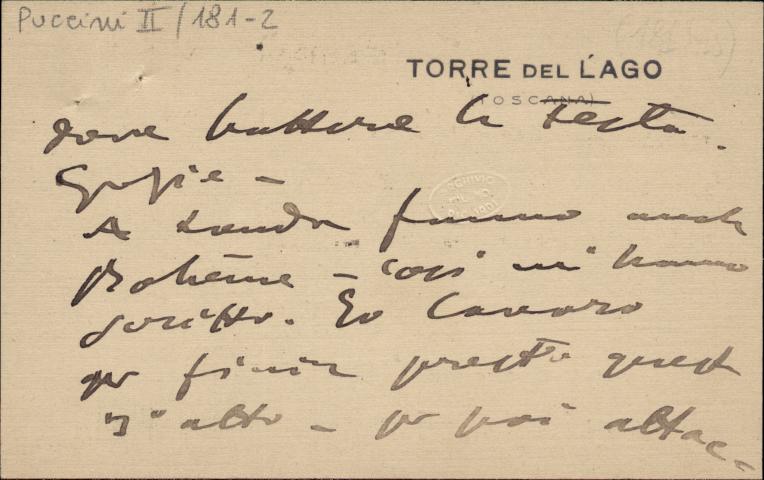 Puccini II/181-2
TORRE DEL LAGO
(TOSCANA)
dove battere la testa.
Grazie –
A Londra faranno anche
Bohème – così mi hanno
scritto. Io lavoro
per finir presto questo
3° atto – per poi attac-